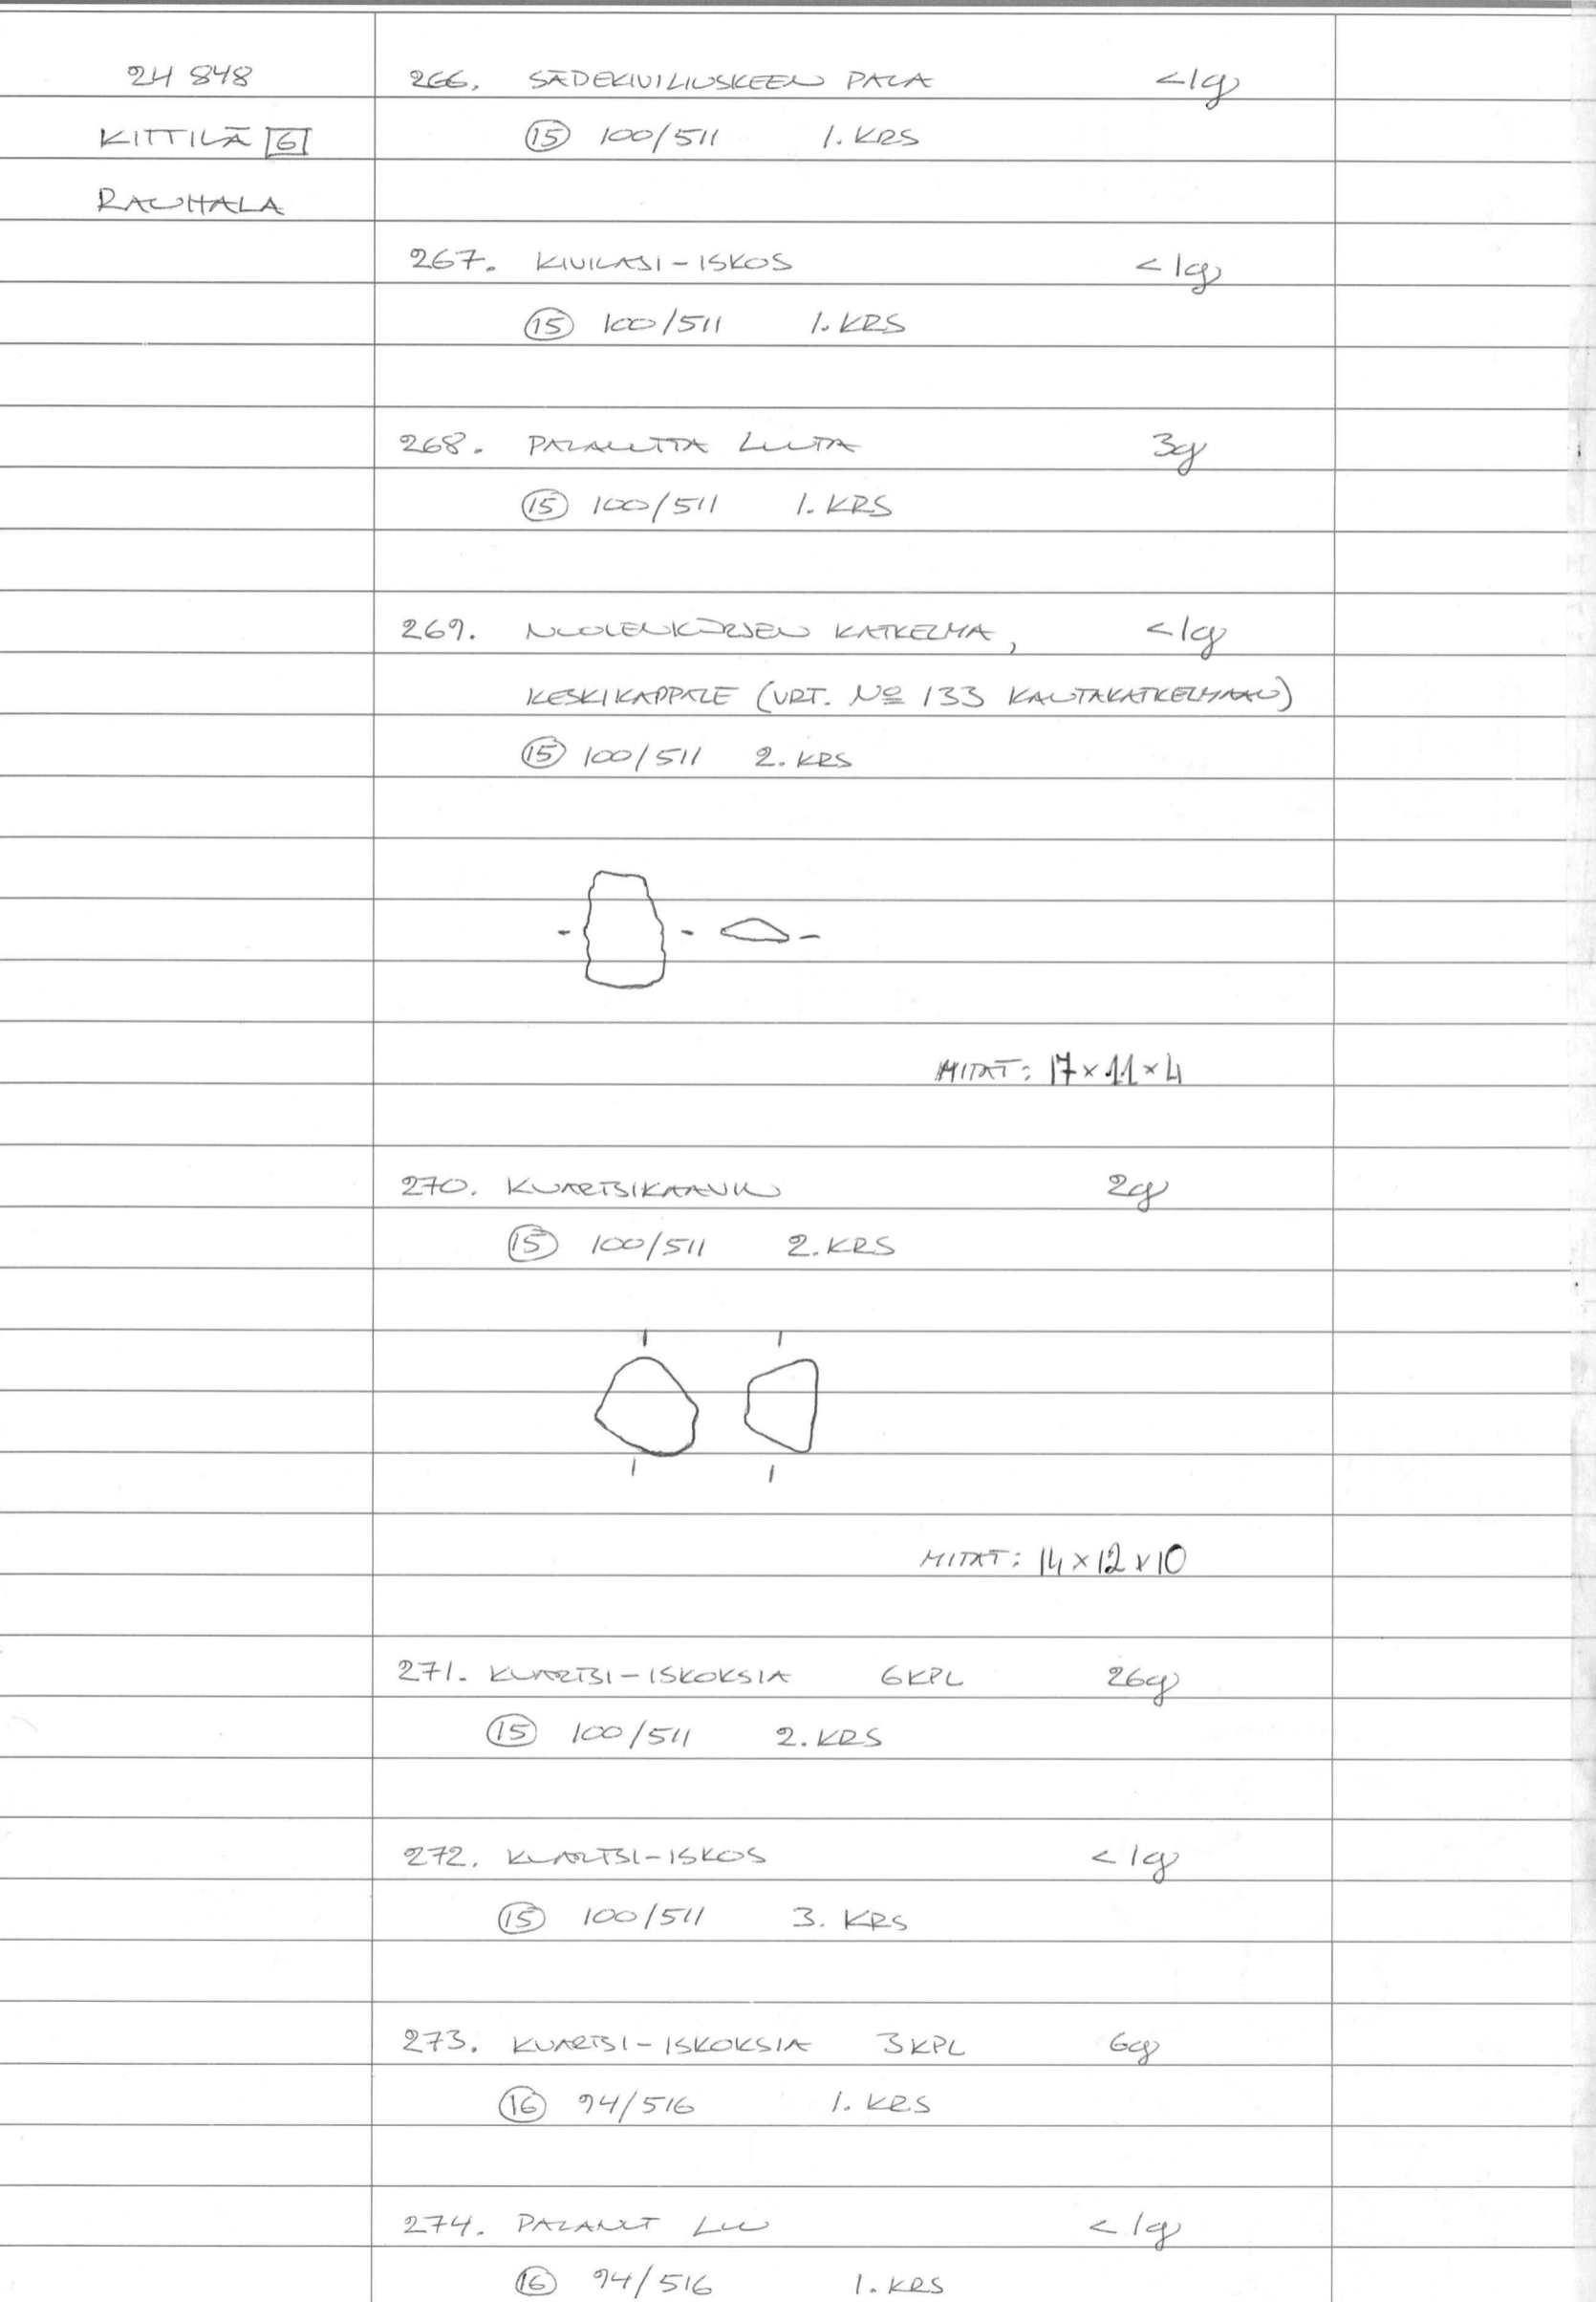 24 848
KITTILÄ 6
RAUHALA
266. SÄDEKIVILIUSKEEN PALA <1g
15 100/511 1. KRS
267. KIVILASI-ISKOS <1g
15 100/511 1. KRS
268. PALANUTTA LUUTA 3g
15 100/511 1. KRS
269. NUOLENKÄRJEN KATKELMA, <1g
KESKIKAPPALE (VRT. № 133 KANTAKATKELMAAN)
15 100/511 2. KRS
MITAT: 17×11×4
270. KVARTSIKAAVIN 2g
15 100/511 2. KRS
MITAT: 14×12×10
271. KVARTSI-ISKOKSIA 6 KPL 26g
15 100/511 2. KRS
272. KVARTSI-ISKOS <1g
15 100/511 3. KRS
273. KVARTSI-ISKOKSIA 3 KPL 6g
16 94/516 1. KRS
274. PALANUT LUU <1g
16 94/516 1. KRS